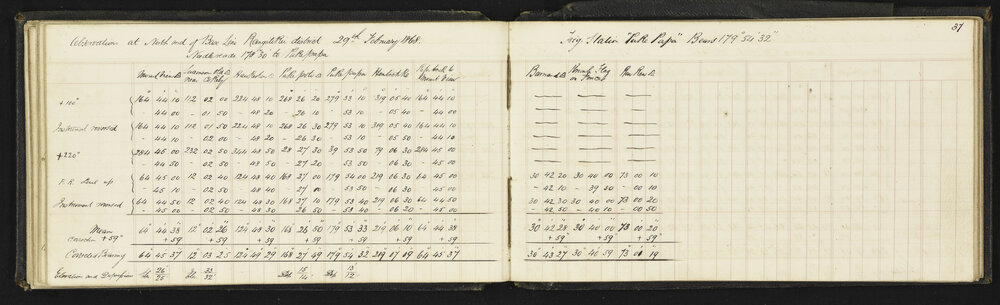 37
Observation at North end of Base Line Rangitikei district 29th February 1868. Trig. Station "Puke Papa" Bears 179° 54' 32"
Needle reads 178° 30' to Pukepapa
Mount View Hanlon Puke Papa Back to Mount View Barnard
+110° 164 44 10 112 02 00 224 48 10 268 26 20 279 53 10 319 05 40 164 44 10
- 44 00 - 01 50 - 48 20 - 26 10 53 10 - 05 40 - 44 00
Instrument reversed 164 44 10 112 01 50 224 48 10 268 26 30 279 53 10 319 05 40 164 44 10
- 44 10 - 02 00 - 48 20 - 26 30 - 53 10 - 05 50 - 44 10
+220° 284 45 00 232 02 50 344 48 50 28 27 30 39 53 50 79 06 30 284 45 00
- 44 50 - 02 50 - 48 50 - 27 20 53 50 - 06 30 - 45 00
F. R. 64 45 00 12 02 40 124 48 40 168 27 00 179 54 00 219 06 30 64 45 00 30 42 20 30 40 00 73 00 10
- 45 10 - 02 50 - 48 40 - 27 00 - 53 50 - 06 30 - 45 00 - 42 10 - 39 50 - 00 10
Instrument reversed 64 44 50 12 02 40 124 48 30 168 27 10 179 53 40 219 06 30 64 44 50 30 42 30 30 40 00 73 00 20
- 45 00 02 50 48 50 26 50 - 53 40 - 06 20 - 45 00 - 42 50 - 40 10 - 00 50
Mean 64 44 38 12 02 26 124 48 30 168 26 50 179 53 33 219 06 10 64 44 38 30 42 28 30 40 00 73 00 20
Correction +59" +59 +59 +59 +59 +59 +59 +59 +59 +59 +59
Corrected Bearing 64 45 37 12 03 25 124 49 29 168 27 49 179 54 32 219 07 09 64 45 37 30 43 27 30 40 59 73 01 19
Elevation and Depression